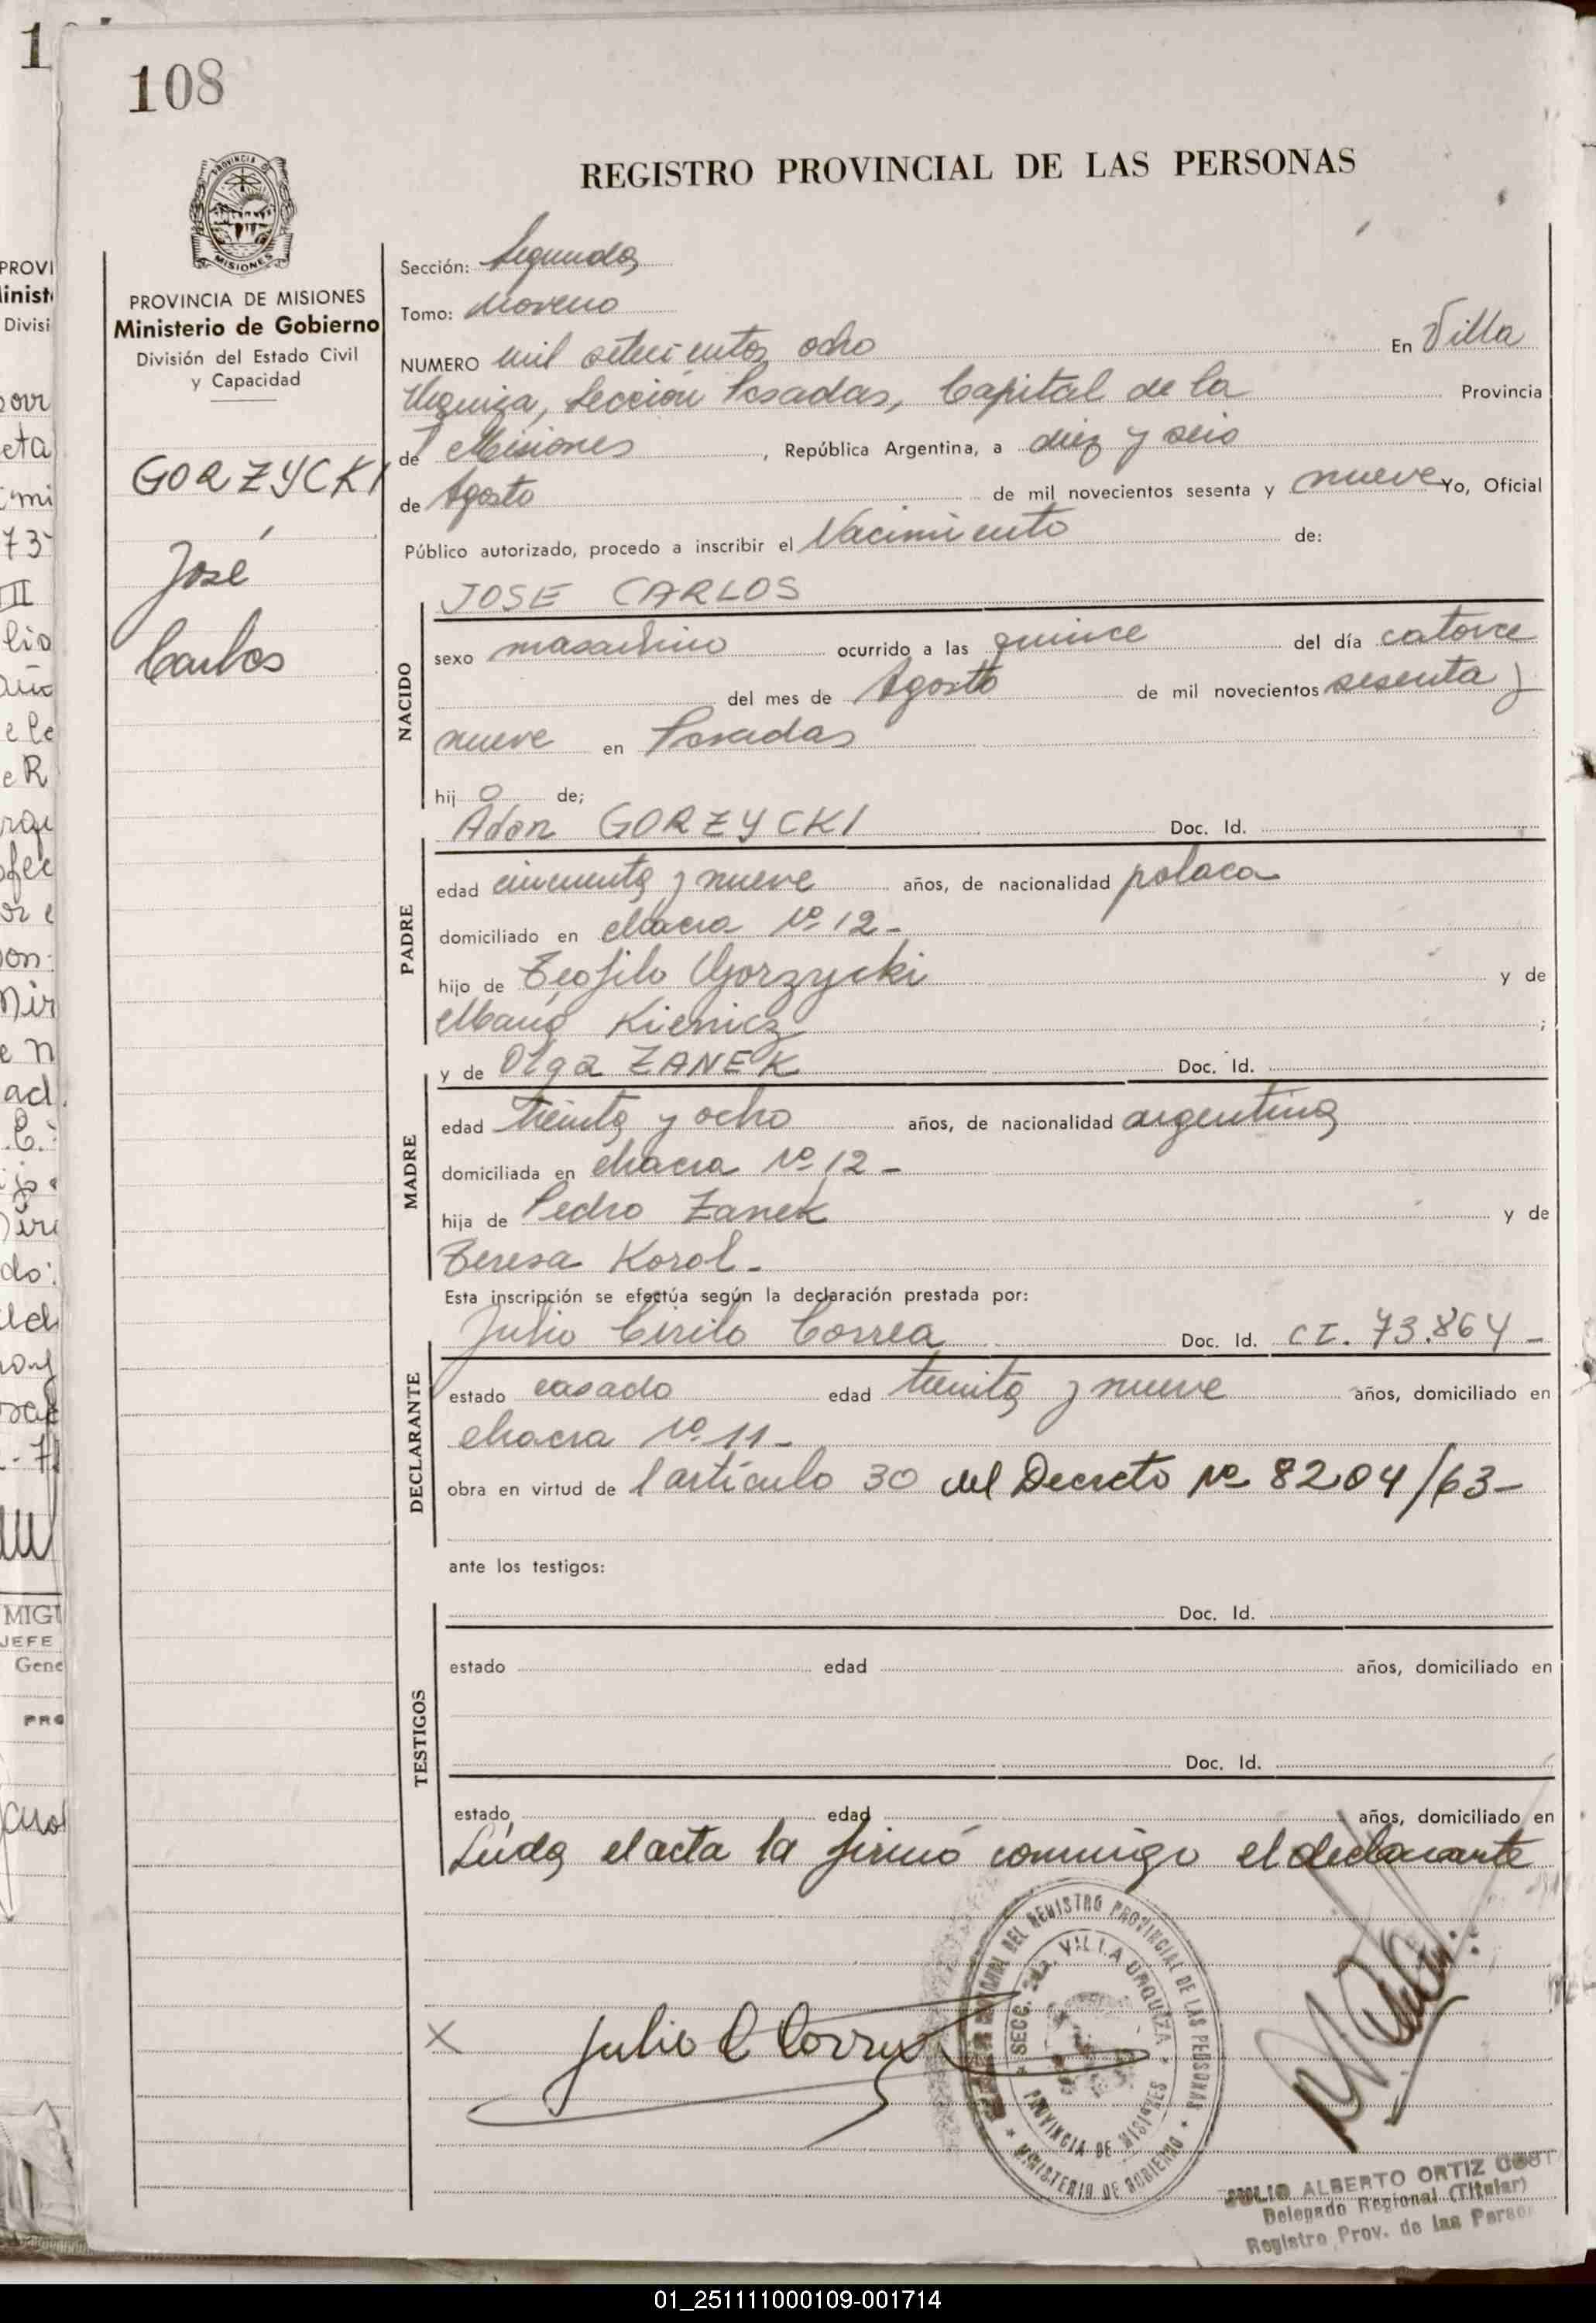 108
REGISTRO PROVINCIAL DE LAS PERSONAS
PROVINCIA DE MISIONES
Ministerio de Gobierno
División del Estado Civil
y Capacidad
GORZYCKI
José
Carlos
Sección: Segunda
Tomo: Moreno
NUMERO mil setecientos ocho En Villa
Urquiza, Sección Posadas, Capital de la Provincia
de Misiones, República Argentina, a diez y seis
de Agosto de mil novecientos sesenta y nueve Yo, Oficial
Público autorizado, procedo a inscribir el Nacimiento de:
JOSE CARLOS
NACIDO
sexo masculino ocurrido a las quince del día catorce
del mes de Agosto de mil novecientos sesenta y
nueve en Posadas
hij o de;
Adan GORZYCKI Doc. Id.
PADRE
edad cincuenta y nueve años, de nacionalidad polaca
domiciliado en chacra Nº 12-
hijo de Teofilo Gorzycki y de
María Kienicz ;
y de Olga ZANEK Doc. Id.
MADRE
edad treinta y ocho años, de nacionalidad argentina
domiciliada en chacra Nº 12-
hija de Pedro Zanek y de
Teresa Korol-
Esta inscripción se efectúa según la declaración prestada por:
Julio Cirilo Correa Doc. Id. CI. 73.864-
DECLARANTE
estado casado edad treinta y nueve años, domiciliado en
chacra Nº 11-
obra en virtud de l artículo 30 del Decreto Nº 8204/63-
ante los testigos:
Doc. Id.
TESTIGOS
estado edad años, domiciliado en
Doc. Id.
estado edad años, domiciliado en
Leída el acta la firmó conmigo el declarante
X Julio C Correa
DEL REGISTRO PROVINCIAL DE LAS PERSONAS
SECC. 2da. VILLA URQUIZA
PROVINCIA DE MISIONES
MINISTERIO DE GOBIERNO
JULIO ALBERTO ORTIZ COST
Delegado Regional (Titular)
Registro Prov. de las Person
01_251111000109-001714